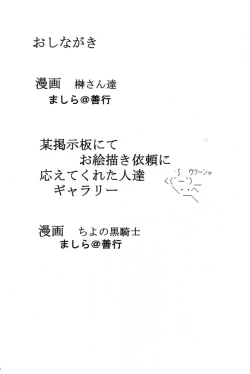 おしながき
漫画 榊さん達
ましら@善行
某掲示板にて
お絵描き依頼に
応えてくれた人達
ギャラリー
漫画 ちよの黒騎士
ましら@善行